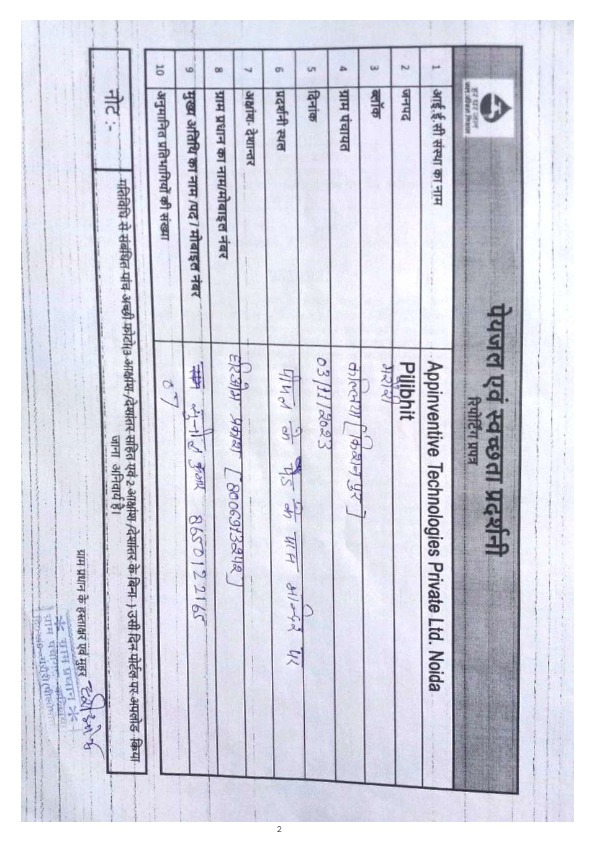 हर घर जल
जल जीवन मिशन
पेयजल एवं स्वच्छता प्रदर्शनी
रिपोर्टिंग प्रपत्र
1 आई.ई.सी संस्था का नाम Appinventive Technologies Private Ltd. Noida
2 जनपद Pilibhit
3 ब्लॉक मरौरी
4 ग्राम पंचायत [किशनपुर]
5 दिनांक 03/11/2023
6 प्रदर्शनी स्थल पीपल के पेड़ के पास मन्दिर पर
7 अक्षांश- देशान्तर
8 ग्राम प्रधान का नाम/मोबाइल नंबर हरिओम प्रकाश
9 मुख्य अतिथि का नाम /पद / मोबाइल नंबर सुनील कुमार 8650122165
10 अनुमानित प्रतिभागियों की संख्या 07
नोट :-
गतिविधि से संबंधित पांच अच्छी फोटो(3-आक्षांश/देशांतर सहित एवं 2 आक्षांश/देशांतर के बिना ) उसी दिन पोर्टल पर अपलोड किया
जाना अनिवार्य है।
ग्राम प्रधान के हस्ताक्षर एवं मुहर
ग्राम प्रधान
2